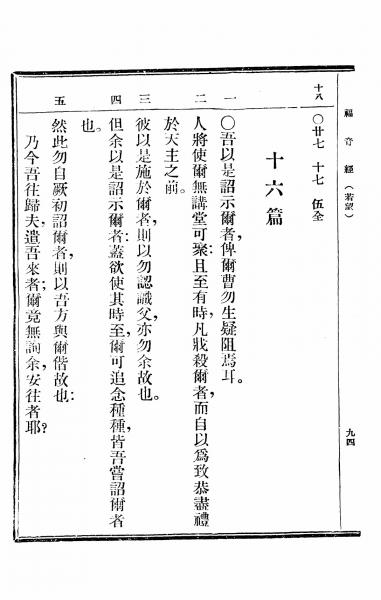 福音經(若望)
九四
十八
〇廿七 十七 伍全
十六篇
一
〇吾以是詔示爾者俾爾曹勿生疑阻焉耳。
二
人將使爾無講堂可聚且至有時凡戕殺爾者而自以爲致恭盡禮
於天主之前。
三
彼以是施於爾者則以勿認識父亦勿余故也。
四
但余以是詔示爾者:蓋欲使其時至,爾可追念種種,皆吾嘗詔爾者
也。
五
然此勿自厥初詔爾者,則以吾方與爾偕故也:
乃今吾往歸夫遣吾來者;爾竟無詢余,安往者耶?